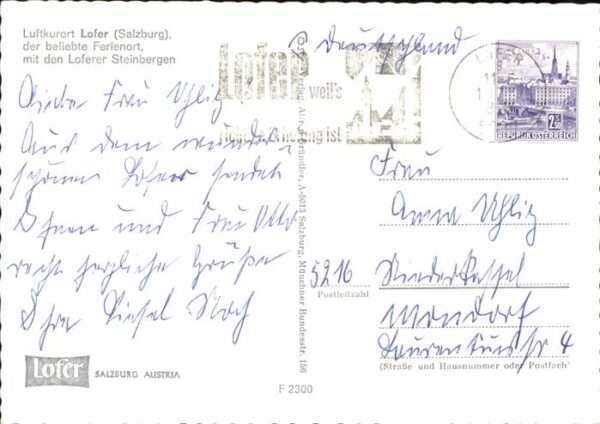 Luftkurort Lofer (Salzburg),
der beliebte Ferienort,
mit den Loferer Steinbergen
Liebe Frau Uhlig
Aus dem wunder-
schönen Lofer sendet
Ihnen und Frau Otto
recht herzliche Grüße
Ihre Liesel Noch
Lofer SALZBURG AUSTRIA
F 2300
A-5013 Salzburg, Münchner Bundesstr. 156
Deutschland
Lofer
weil's
ist
REPUBLIK ÖSTERREICH
Frau
Anna Uhlig
5216 Niederkassel
Postleitzahl
Mondorf
4
(Straße und Hausnummer oder Postfach)